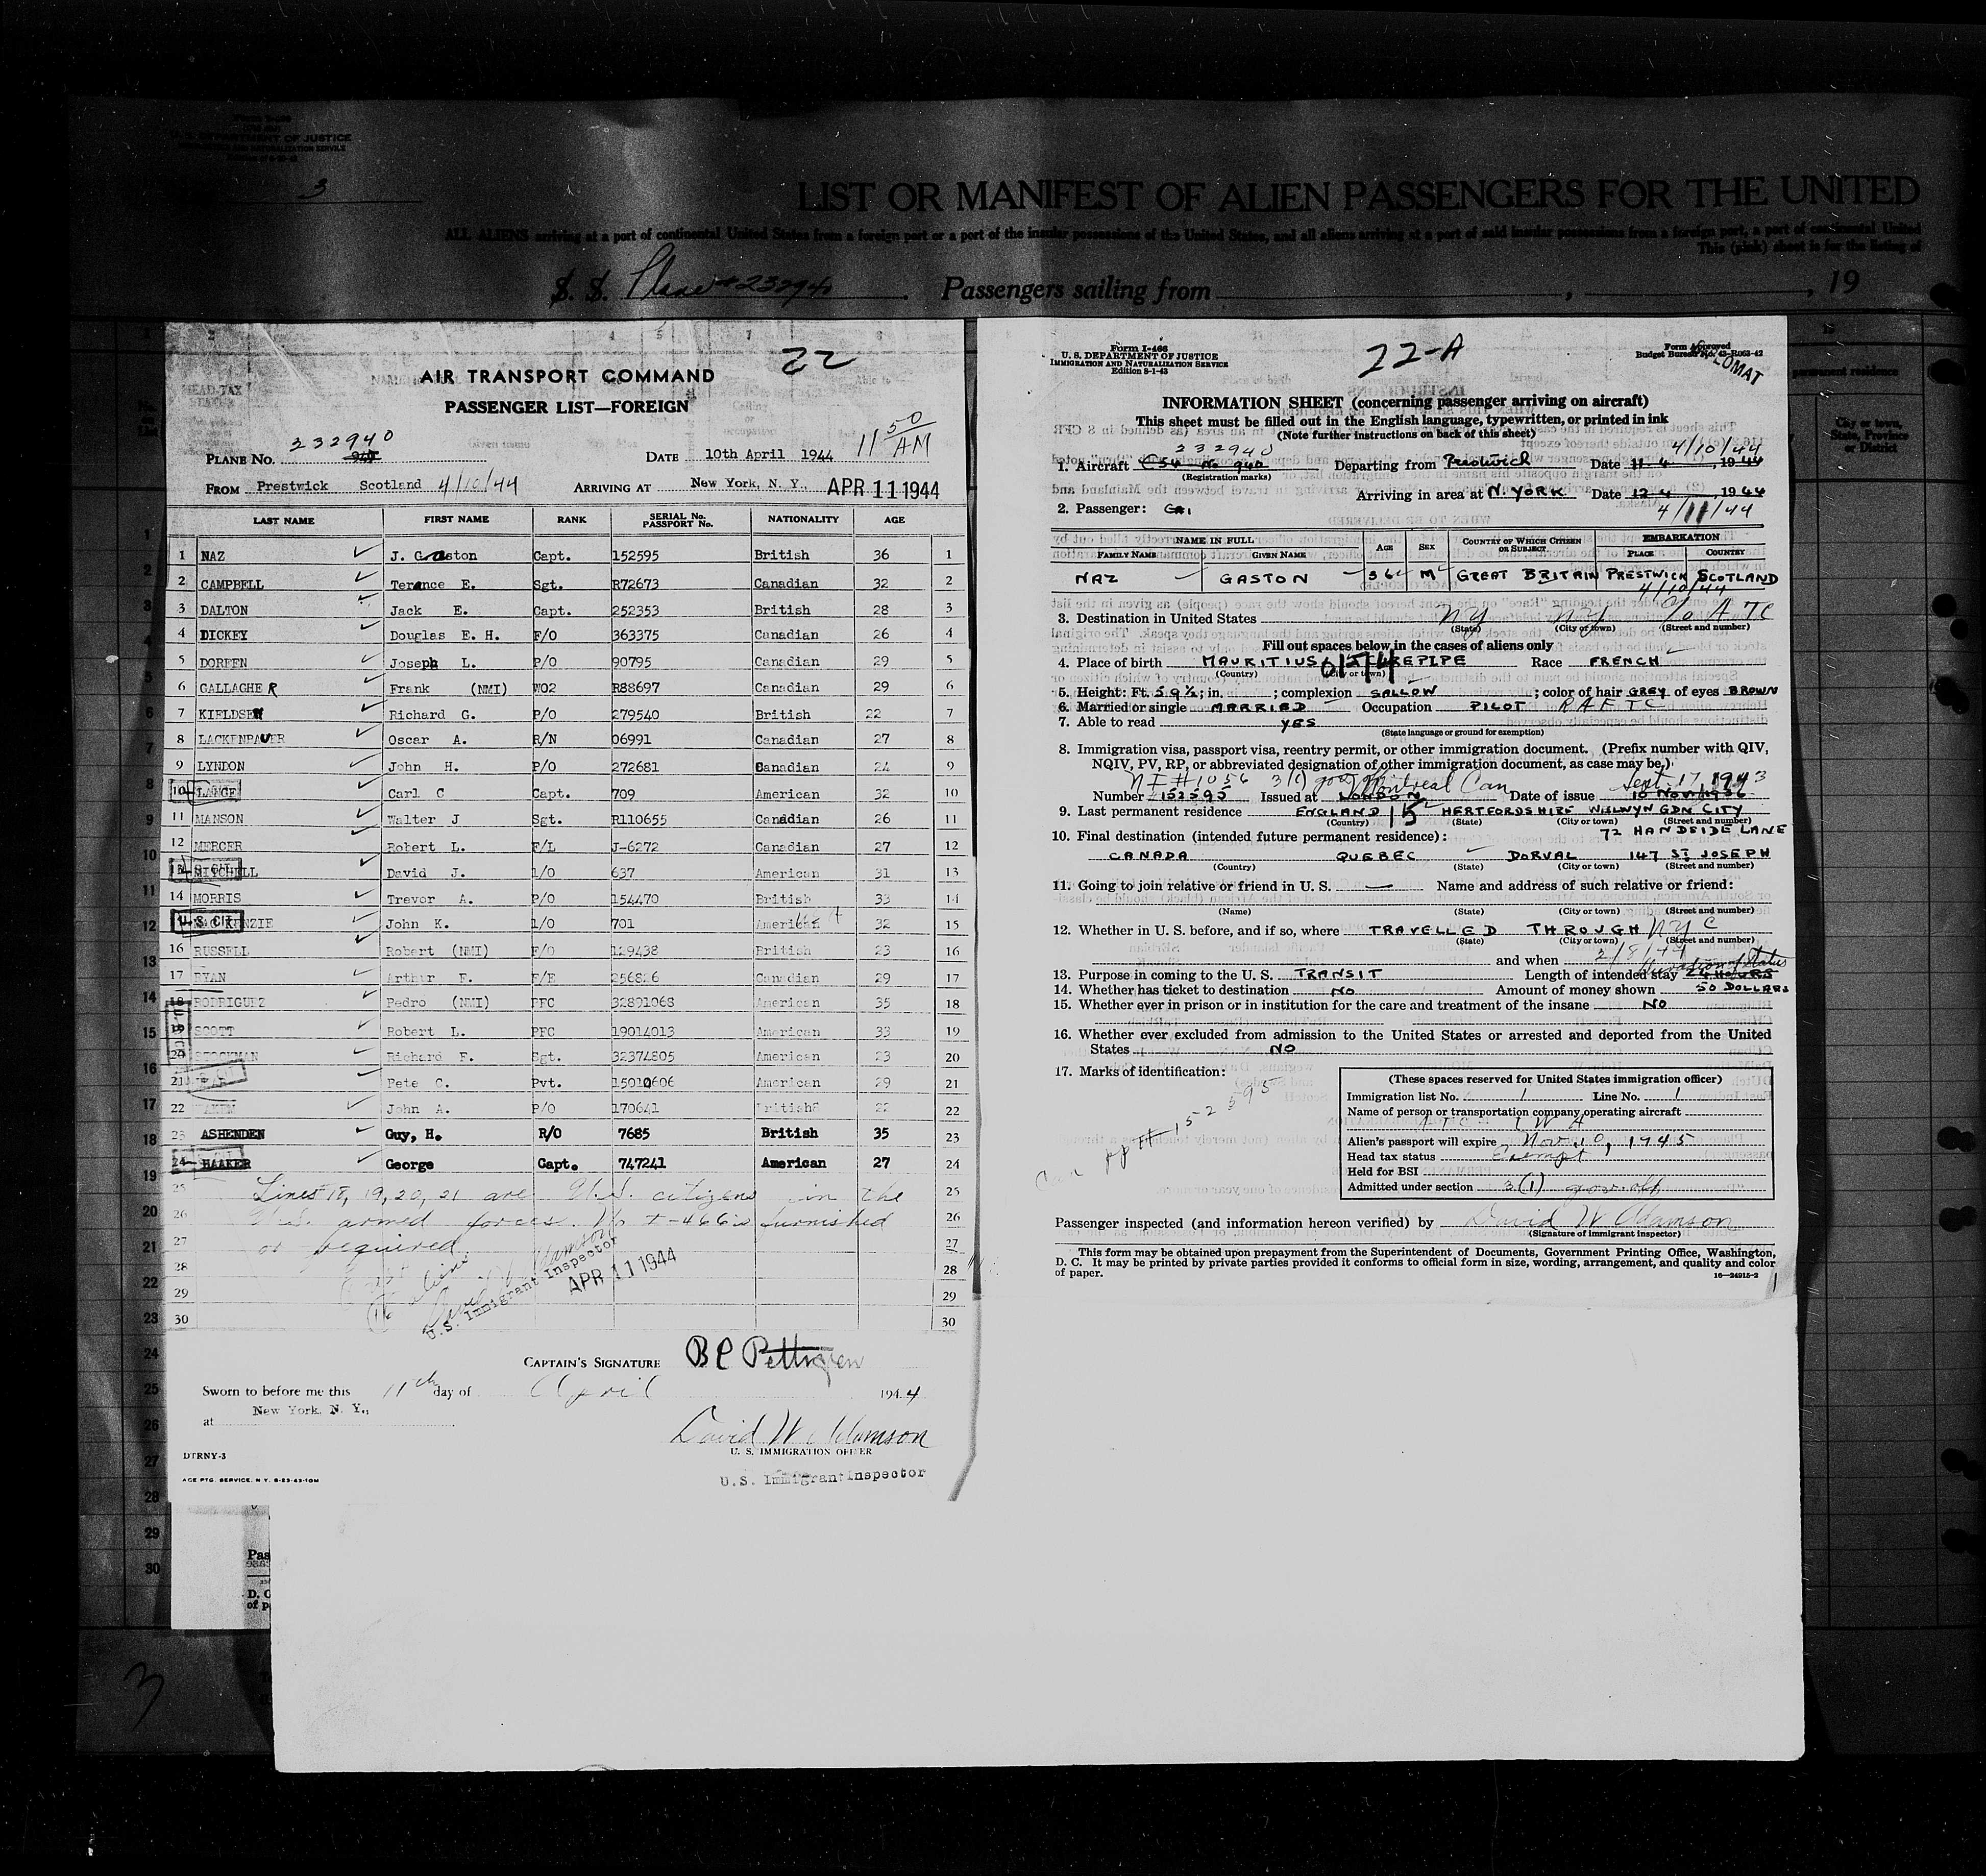 U. S. DEPARTMENT OF JUSTICE
3
LIST OR MANIFEST OF ALIEN PASSENGERS FOR THE UNITED
ALL ALIENS arriving at a port of continental United States from a foreign port or a port of the insular possessions of the United States, and all aliens arriving at a port of said insular possessions from a foreign port, a port of continental United
This (pink) sheet is for the listing of
S. S. Plane # 23294 Passengers sailing from , , 19
22
AIR TRANSPORT COMMAND
PASSENGER LIST—FOREIGN
11 50 AM
232940
PLANE NO. 940 DATE 10th April 1944
FROM Prestwick Scotland 4/10/44 ARRIVING AT New York, N. Y., APR 11 1944
LAST NAME FIRST NAME RANK SERIAL No. PASSPORT No. NATIONALITY AGE
1 NAZ J. Gaston Capt. 152595 British 36 1
2 CAMPBELL Terence E. Sgt. R72673 Canadian 32 2
3 DALTON Jack E. Capt. 252353 British 28 3
4 DICKEY Douglas E. H. F/O 363375 Canadian 26 4
5 DOREEN Joseph L. P/O 90795 Canadian 29 5
6 GALLAGHER Frank (NMI) WO2 R88697 Canadian 29 6
7 KIELDSEN Richard G. P/O 279540 British 22 7
8 LACKENBAUER Oscar A. R/N 06991 Canadian 27 8
9 LYNDON John H. P/O 272681 Canadian 24 9
10 LANGE Carl C Capt. 709 American 32 10
11 MANSON Walter J Sgt. R110655 Canadian 26 11
12 MERCER Robert L. F/L J-6272 Canadian 27 12
13 MITCHELL David J. 1/O 637 American 31 13
14 MORRIS Trevor A. P/O 154470 British 33 14
U.S. CIT John K. 1/O 701 American 32 15
16 RUSSELL Robert (NMI) F/O 129438 British 23 16
17 RYAN Arthur F. F/E 256826 Canadian 29 17
18 RODRIGUEZ Pedro (NMI) PFC 32891068 American 35 18
19 SCOTT Robert L. PFC 19014013 American 33 19
20 STOCKMAN Richard F. Sgt. 32374805 American 23 20
21 Pete C. Pvt. 15010606 American 29 21
22 John A. P/O 170641 British 22 22
23 ASHENDEN Guy, H. R/O 7685 British 35 23
24 HAAKER George Capt. 747241 American 27 24
25 Lines 18, 19, 20, 21 are U.S. citizens in the 25
26 U.S. armed forces. No I-466's furnished 26
27 or required. 27
28 28
29 29
30 30
U.S. Immigrant Inspector
APR 11 1944
CAPTAIN'S SIGNATURE B C Pettigrew
Sworn to before me this 11th day of April 1944
at New York, N. Y.,
David W. Adamson
U. S. IMMIGRATION OFFICER
U.S. Immigrant Inspector
DTRNY-3
AGE PTG. SERVICE, N. Y. 8-23-43-10M
Form I-466
U. S. DEPARTMENT OF JUSTICE
IMMIGRATION AND NATURALIZATION SERVICE
Edition 8-1-43
22-A
Form Approved
Budget Bureau No. 43-R063-42
INFORMATION SHEET (concerning passenger arriving on aircraft)
This sheet must be filled out in the English language, typewritten, or printed in ink
(Note further instructions on back of this sheet)
232940 4/10/44
1. Aircraft C54 No 940 Departing from Prestwick Date 11-4, 1944
(Registration marks)
Arriving in area at N. YORK Date 12-4, 1944
4/11/44
2. Passenger:
NAME IN FULL AGE SEX COUNTRY OF WHICH CITIZEN OR SUBJECT EMBARKATION
FAMILY NAME GIVEN NAME PLACE COUNTRY
NAZ GASTON 36 M GREAT BRITAIN PRESTWICK SCOTLAND
4/10/44
3. Destination in United States NY NY c/o ATC
(State) (City or town) (Street and number)
Fill out spaces below in the cases of aliens only
4. Place of birth MAURITIUS CUREPIPE Race FRENCH
(Country) (City or town)
5. Height: Ft. 5 9½; in. ; complexion SALLOW ; color of hair GREY of eyes BROWN
6. Married or single MARRIED Occupation PILOT RAFTC
7. Able to read YES
(State language or ground for exemption)
8. Immigration visa, passport visa, reentry permit, or other immigration document. (Prefix number with QIV,
NQIV, PV, RP, or abbreviated designation of other immigration document, as case may be.)
NI #1056 3(1) gov off Montreal Can Sept. 17, 1943
Number 152595 Issued at LONDON Date of issue 10 NOV 1936
9. Last permanent residence ENGLAND HERTFORDSHIRE WELWYN GDN CITY
(Country) (State) (City or town) (Street and number)
72 HANDSIDE LANE
10. Final destination (intended future permanent residence):
CANADA QUEBEC DORVAL 147 ST. JOSEPH
(Country) (State) (City or town) (Street and number)
11. Going to join relative or friend in U. S. — Name and address of such relative or friend:
(Name) (State) (City or town) (Street and number)
12. Whether in U. S. before, and if so, where TRAVELLED THROUGH NYC
(State) (City or town) (Street and number)
and when 2/8/44
Duration of Status
13. Purpose in coming to the U. S. TRANSIT Length of intended stay 24 HOURS
14. Whether has ticket to destination NO Amount of money shown 50 DOLLARS
15. Whether ever in prison or in institution for the care and treatment of the insane NO
16. Whether ever excluded from admission to the United States or arrested and deported from the United
States NO
17. Marks of identification:
Can ppt # 152595
(These spaces reserved for United States immigration officer)
Immigration list No. 1 Line No. 1
Name of person or transportation company operating aircraft
ATC TWA
Alien's passport will expire Nov. 10, 1945
Head tax status Exempt
Held for BSI
Admitted under section 3(1) gov. off
Passenger inspected (and information hereon verified) by David W Adamson
(Signature of immigrant inspector)
This form may be obtained upon prepayment from the Superintendent of Documents, Government Printing Office, Washington,
D. C. It may be printed by private parties provided it conforms to official form in size, wording, arrangement, and quality and color
of paper.
16—24915-2
3